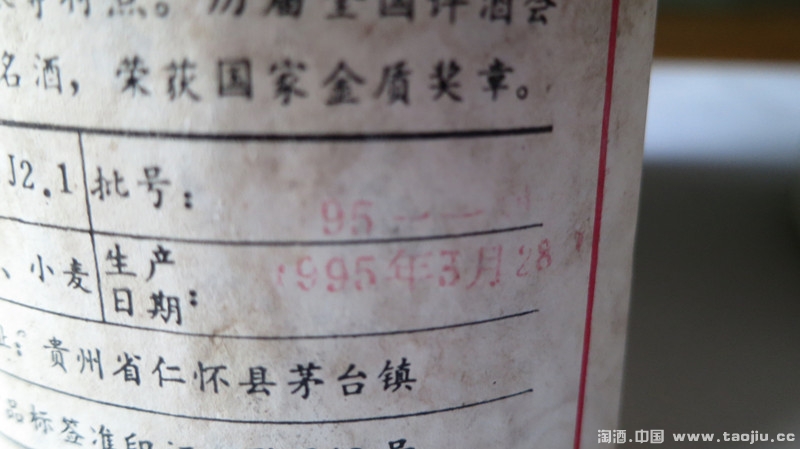 点。历届全国评酒会
名酒，荣获国家金质奖章。
J2.1 批号： 95一一
、小麦 生产日期： 1995年3月28
址：贵州省仁怀县茅台镇
品标签准印
号
淘酒.中国 www.taojiu.cc